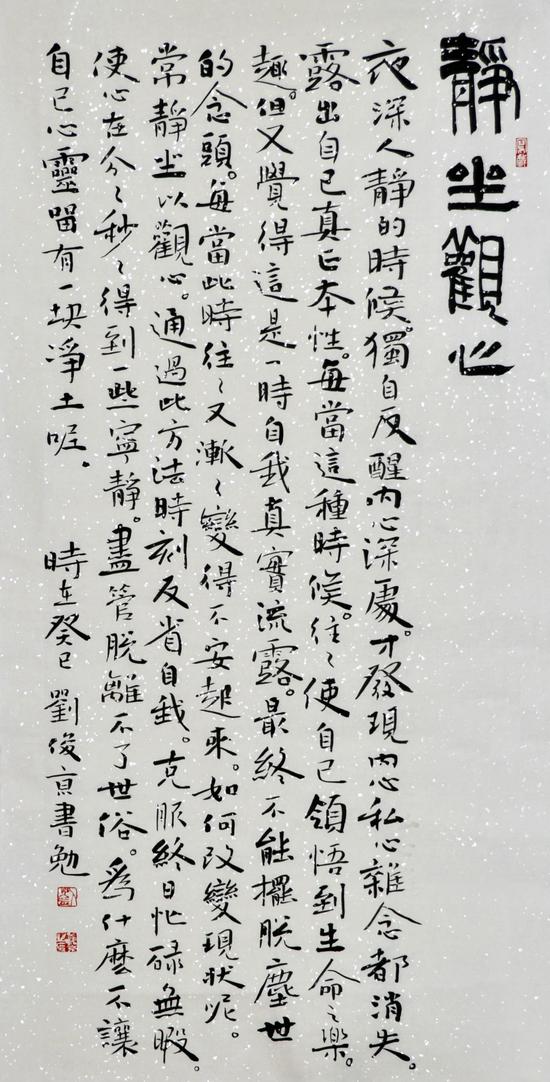 靜坐觀心
夜深人靜的時候。獨自反醒。內心深處。才發現內心私心雜念都消失。
露出自己真正本性。每當這種時候。往〻使自己領悟到生命之樂。
趣。但又覺得這是一時自我真實流露。最終不能擺脫塵世
的念頭。每當此時往〻又漸〻變得不安起來。如何改變現狀呢。
常靜坐以觀心。通過此方法時刻反省自我。克服終日忙碌無暇。
使心在分〻秒〻得到一些寧靜。盡管脫離不了世俗。爲什麼不讓
自己心靈留有一块淨土呢。
時在癸巳劉俊京書勉